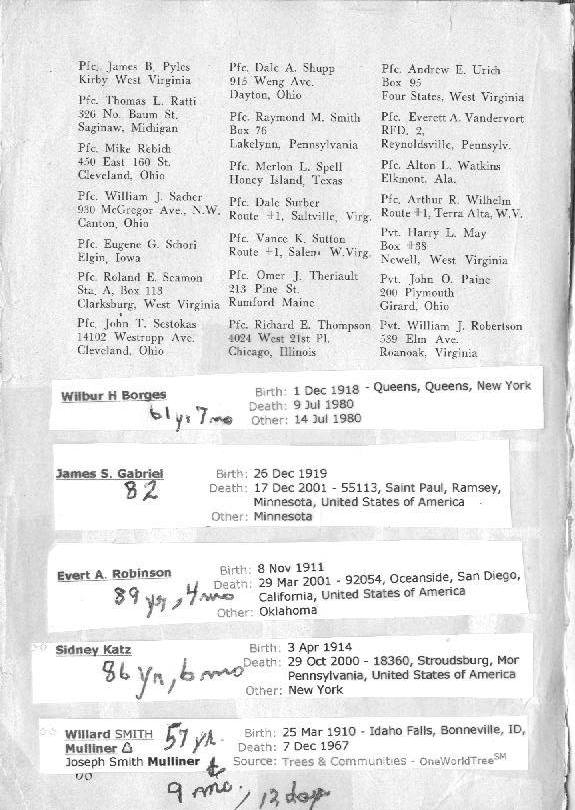 Pfc. James B. Pyles
Kirby West Virginia
Pfc. Thomas L. Ratti
326 No. Baum St.
Saginaw, Michigan
Pfc. Mike Rebich
450 East 160 St.
Cleveland, Ohio
Pfc. William J. Sacher
930 McGregor Ave., N.W.
Canton, Ohio
Pfc. Eugene G. Schori
Elgin, Iowa
Pfc. Roland E. Seamon
Sta. A, Box 113
Clarksburg, West Virginia
Pfc. John T. Sestokas
14102 Westropp Ave.
Cleveland, Ohio
Pfc. Dale A. Shupp
915 Weng Ave.
Dayton, Ohio
Pfc. Raymond M. Smith
Box 76
Lakelynn, Pennsylvania
Pfc. Merlon L. Spell
Honey Island, Texas
Pfc. Dale Surber
Route #1, Saltville, Virg.
Pfc. Vance K. Sutton
Route #1, Salem W.Virg.
Pfc. Omer J. Theriault
213 Pine St.
Rumford Maine
Pfc. Richard E. Thompson
4024 West 21st Pl.
Chicago, Illinois
Pfc. Andrew E. Urich
Box 95
Four States, West Virginia
Pfc. Everett A. Vandervort
RFD. 2,
Reynoldsville, Pennsylv.
Pfc. Alton L. Watkins
Elkmont, Ala.
Pfc. Arthur R. Wilhelm
Route #1, Terra Alta, W.V.
Pvt. Harry L. May
Box #38
Newell, West Virginia
Pvt. John O. Paine
200 Plymouth
Girard, Ohio
Pvt. William J. Robertson
539 Elm Ave.
Roanoak, Virginia
Wilbur H Borges
61 yr 7 mo
Birth: 1 Dec 1918 - Queens, Queens, New York
Death: 9 Jul 1980
Other: 14 Jul 1980
James S. Gabriel
82
Birth: 26 Dec 1919
Death: 17 Dec 2001 - 55113, Saint Paul, Ramsey,
Minnesota, United States of America
Other: Minnesota
Evert A. Robinson
89 yr, 4 mo
Birth: 8 Nov 1911
Death: 29 Mar 2001 - 92054, Oceanside, San Diego,
California, United States of America
Other: Oklahoma
Sidney Katz
86 yr, 6 mo
Birth: 3 Apr 1914
Death: 29 Oct 2000 - 18360, Stroudsburg, Mor
Pennsylvania, United States of America
Other: New York
Willard SMITH
Mulliner
Joseph Smith Mulliner
57 yr.
9 mo., 12 days
Birth: 25 Mar 1910 - Idaho Falls, Bonneville, ID,
Death: 7 Dec 1967
Source: Trees & Communities - OneWorldTree℠